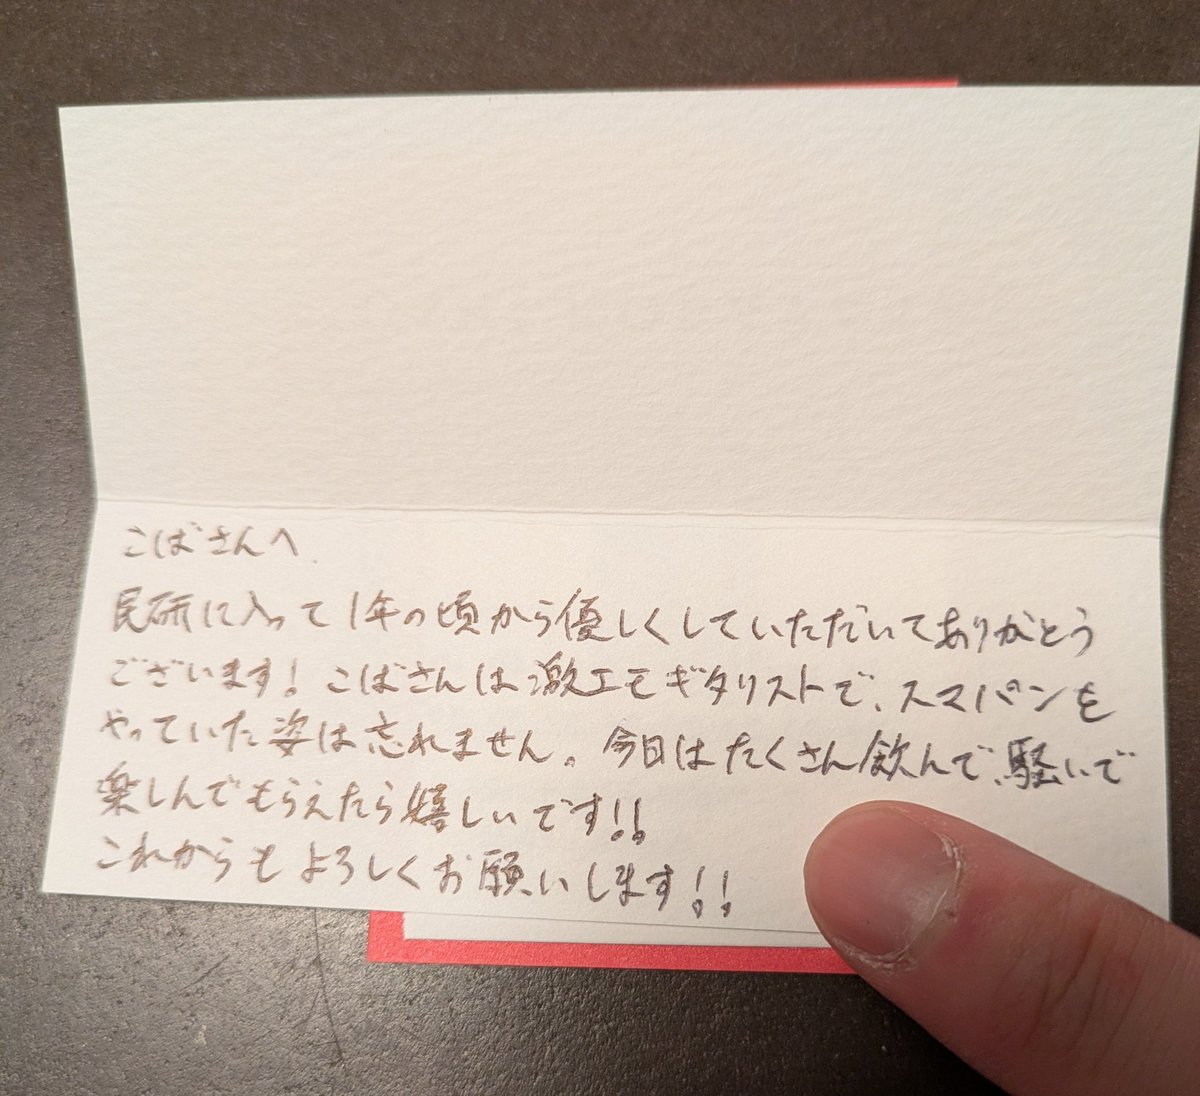 こばさんへ
民研に入って1年の頃から優しくしていただいてありがとう
ございます! こばさんは激エモギタリストで、スマパンを
やっていた姿は忘れません。今日はたくさん飲んで、騒いで
楽しんでもらえたら嬉しいです!!
これからもよろしくお願いします!!